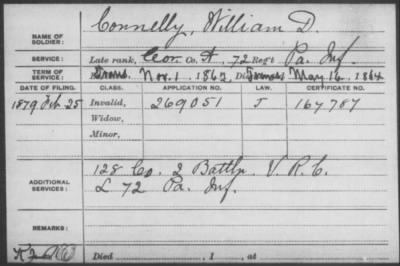 NAME OF SOLDIER: Connelly, William D.
SERVICE: Late rank, Cor. Co. A, 72 Reg't Pa. Inf.
TERM OF SERVICE: Nov. 1, 1863, May 16, 1864
DATE OF FILING. CLASS. APPLICATION NO. LAW. CERTIFICATE NO.
1879 Feb. 25 Invalid, 269051 J 167787
Widow,
Minor,
ADDITIONAL SERVICES: 128 Co. 2 Battln. V. R. C.
L 72 Pa. Inf.
REMARKS:
Died , 1 , at